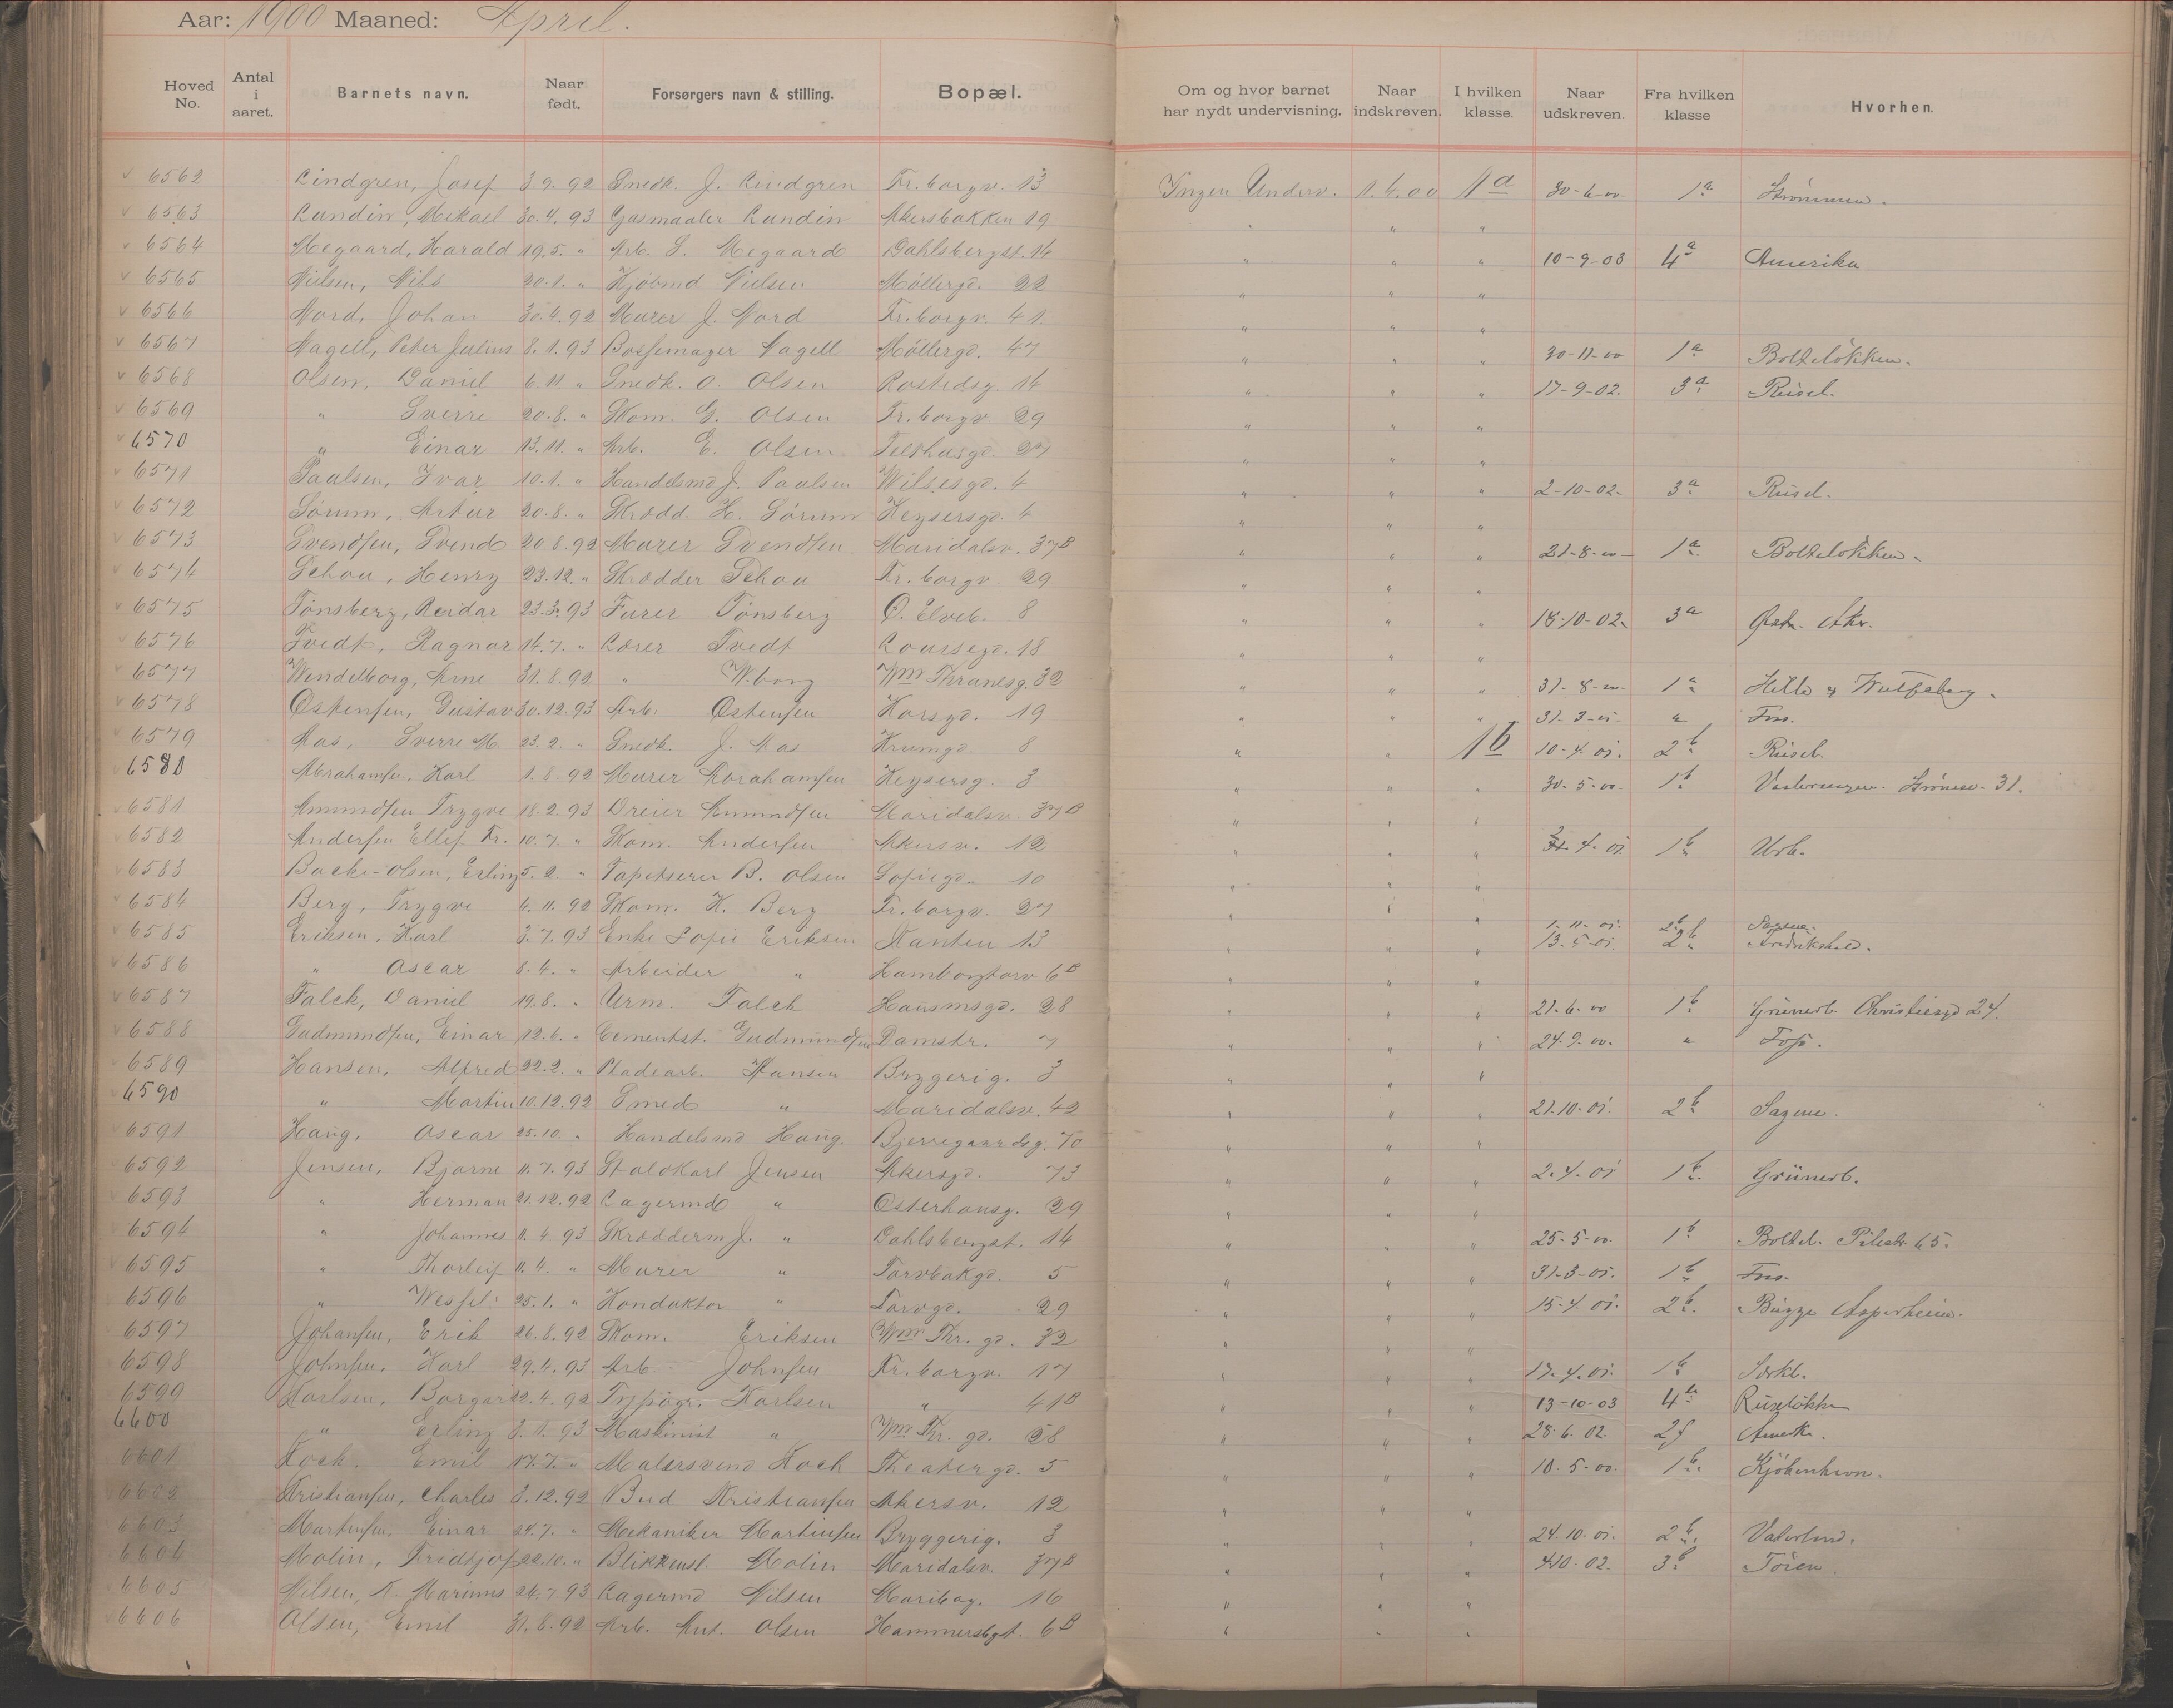 Aar: 1900 Maaned: April.
Hoved No. Antal i aaret. Barnets navn. Naar født. Forsørgers navn & stilling. Bopæl. Om og hvor barnet har nydt undervisning. Naar indskreven. I hvilken klasse. Naar udskreven. Fra hvilken klasse Hvorhen.
6562 Lindgren, Josef 3.9.92 Snedk. J. Lindgren Fr. borgv. 13 Ingen Underv. 1.4.00 1a 30-6-00 1a Strømmen.
6563 Lundin, Mekael 30.4.93 Gasmaaler Lundin Akersbakken 19 " " "
6564 Megaard, Harald 19.5. " Arb. S. Megaard Dahlsbergst. 14 " " " 10-9-03 4a Amerika
6565 Nielsen, Nils 20.1. " Kjøbmd Nielsen Møllergd. 22 " " "
6566 Nord, Johan 30.4.92 Murer J. Nord Fr. borgv. 41. " " "
6567 Nagell, Peter Julius 8.1.93 Bøssemager Nagell Møllergd. 47 " " " 30-11-00 1a Bolteløkken.
6568 Olsen, Daniel 6.11. " Snedk. O. Olsen Rostedsg. 14 " " " 17-9-02. 3a Rusel.
6569 " Sverre 20.8. " Skom. G. Olsen Fr. borgv 29 " " "
6570 " Einar 13.11. " Arb. E. Olsen Telthusgd. 27 " " "
6571 Paulsen, Ivar 10.1. " Handelsmd J. Paulsen Wilsesgd. 4 " " " 2-10-02. 3a Rusel.
6572 Sørum, Artur 20.8. " Skrædd. H. Sørum Keysersgd. 4 " " "
6573 Svendsen, Svend 20.8.92 Murer Svendsen Maridalsv. 37B " " " 21-8-00 1a Bolteløkken
6574 Schou, Henry 23.12. " Skrædder Schou Fr. borgv. 29 " " "
6575 Tønsberg, Reidar 23.3.93 Furer Tønsberg Ø. Elveb. 8 " " " 18-10-02. 3a Østr. Aker.
6576 Tvedt, Ragnar 14.7. " Lærer Tvedt Louisegd. 18 " " "
6577 Wendelborg, Arne 31.8.92 " W.borg Wm Thranesg. 32 " " " 31-8-00 1a Hille
6578 Østensen, Gustav 30.12.93 Arb. Østensen Korsgd. 19 " " " 31-3-01 " Foss.
6579 Aas, Sverre M. 23.2. " Snedk. J. Aas Krumgd. 8 " " 1b 10-4-01. 2b Rusel.
6580 Abrahamsen. Karl 1.8.92 Murer Abrahamsen Keysersg. 3 " " " 30-5-00. 1b 31.
6581 Amundsen Trygve 18.2.93 Dreier Amundsen Maridalsv. 37B " " "
6582 Andersen Ellef Fr. 10.7. " Skom. Andersen Akersv. 12 " " " 4-01. 1b
6583 Backe-Olsen, Erling 5.2. " Tapetserer B. Olsen Sofiegd. 10 " " "
6584 Berg, Trygve 6.11.92 Skom. K. Berg Fr. borgv. 27 " " " 1-11-01. 2b Sagene.
6585 Eriksen, Karl 3.7.93 Enke Sofie Eriksen Kanten 13 " " " 13-5-01. 2b Fredrikshald.
6586 " Oscar 8.4. " Arbeider " Hamborgtorv 6B " " "
6587 Falck, Daniel 19.8. " Urm. Falck Hausmsgd. 28 " " " 21-6-00 1b Grünerl. Christiesgd 24.
6588 Gudmundsen, Einar 12.6. " Cementst. Gudmundsen Damstr. 7 " " " 24-9-00. " Foss.
6589 Hansen, Alfred 22.2. " Pladearb. Hansen Bryggerig. 3 " " "
6590 " Martin 10.12.92 Smed " Maridalsv. 42 " " " 21-10-01. 2b Sagene.
6591 Haug, Oscar 25.10. " Handelsmd Haug. Bjerregaardsg. 70 " " "
6592 Jensen, Bjarne 11.7.93 Staldkarl Jensen Akersgd. 73 " " " 2-4-01 1b Grünerl.
6593 " Herman 21.12.92 Lagermd " Osterhausg. 29 " " "
6594 " Johannes 11.4.93 Skrædderm J. " Dahlsbergst. 14 " " " 25-5-00. 1b Boltel. Pilestr. 65.
6595 " Thorleif 11.4. " Murer " Torvbakgd. 5 " " " 31-3-01. 1b Foss.
6596 " Wessel 25.1. " Konduktør " Torvgd. 29 " " " 15-4-01. 2b.
6597 Johansen, Erik 26.8.92 Skom. Eriksen Wm Thr. gd. 32 " " "
6598 Johnsen, Karl 29.4.93 Arb. Johnsen Fr. borgv. 17 " " " 17-4-01. 1b
6599 Karlsen, Borgar 22.4.92 Typogr. Karlsen " 41B " " " 13-10-03 4a Ruseløkken
6600 " Erling 3.11.93 Maskinist " Wm Thr. gd. 28 " " " 28.6.02. 2f Amerika.
6601 Koch. Emil 17.7. " Malersvend Koch Theatergd. 5 " " " 10-5-00. 1b. Kjøbenhavn.
6602 Kristiansen, Charles 3.12.92 Bud Kristiansen Akersv. 12 " " "
6603 Martinsen, Einar 24.7. " Mekaniker Martinsen Bryggerig. 3 " " " 24-10-01. 2b. Vaterland.
6604 Molin, Fridtjof 22.10. " Blikkensl. Molin Maridalsv. 37B " " " 4-10-02. 3b Tøien.
6605 Nilsen, K. Marinus 24.7.93 Lagermd Nilsen Maribog. 16 " " "
6606 Olsen, Emil 31.8.92 Arb. Ant. Olsen Hammersbgt. 6B " " "